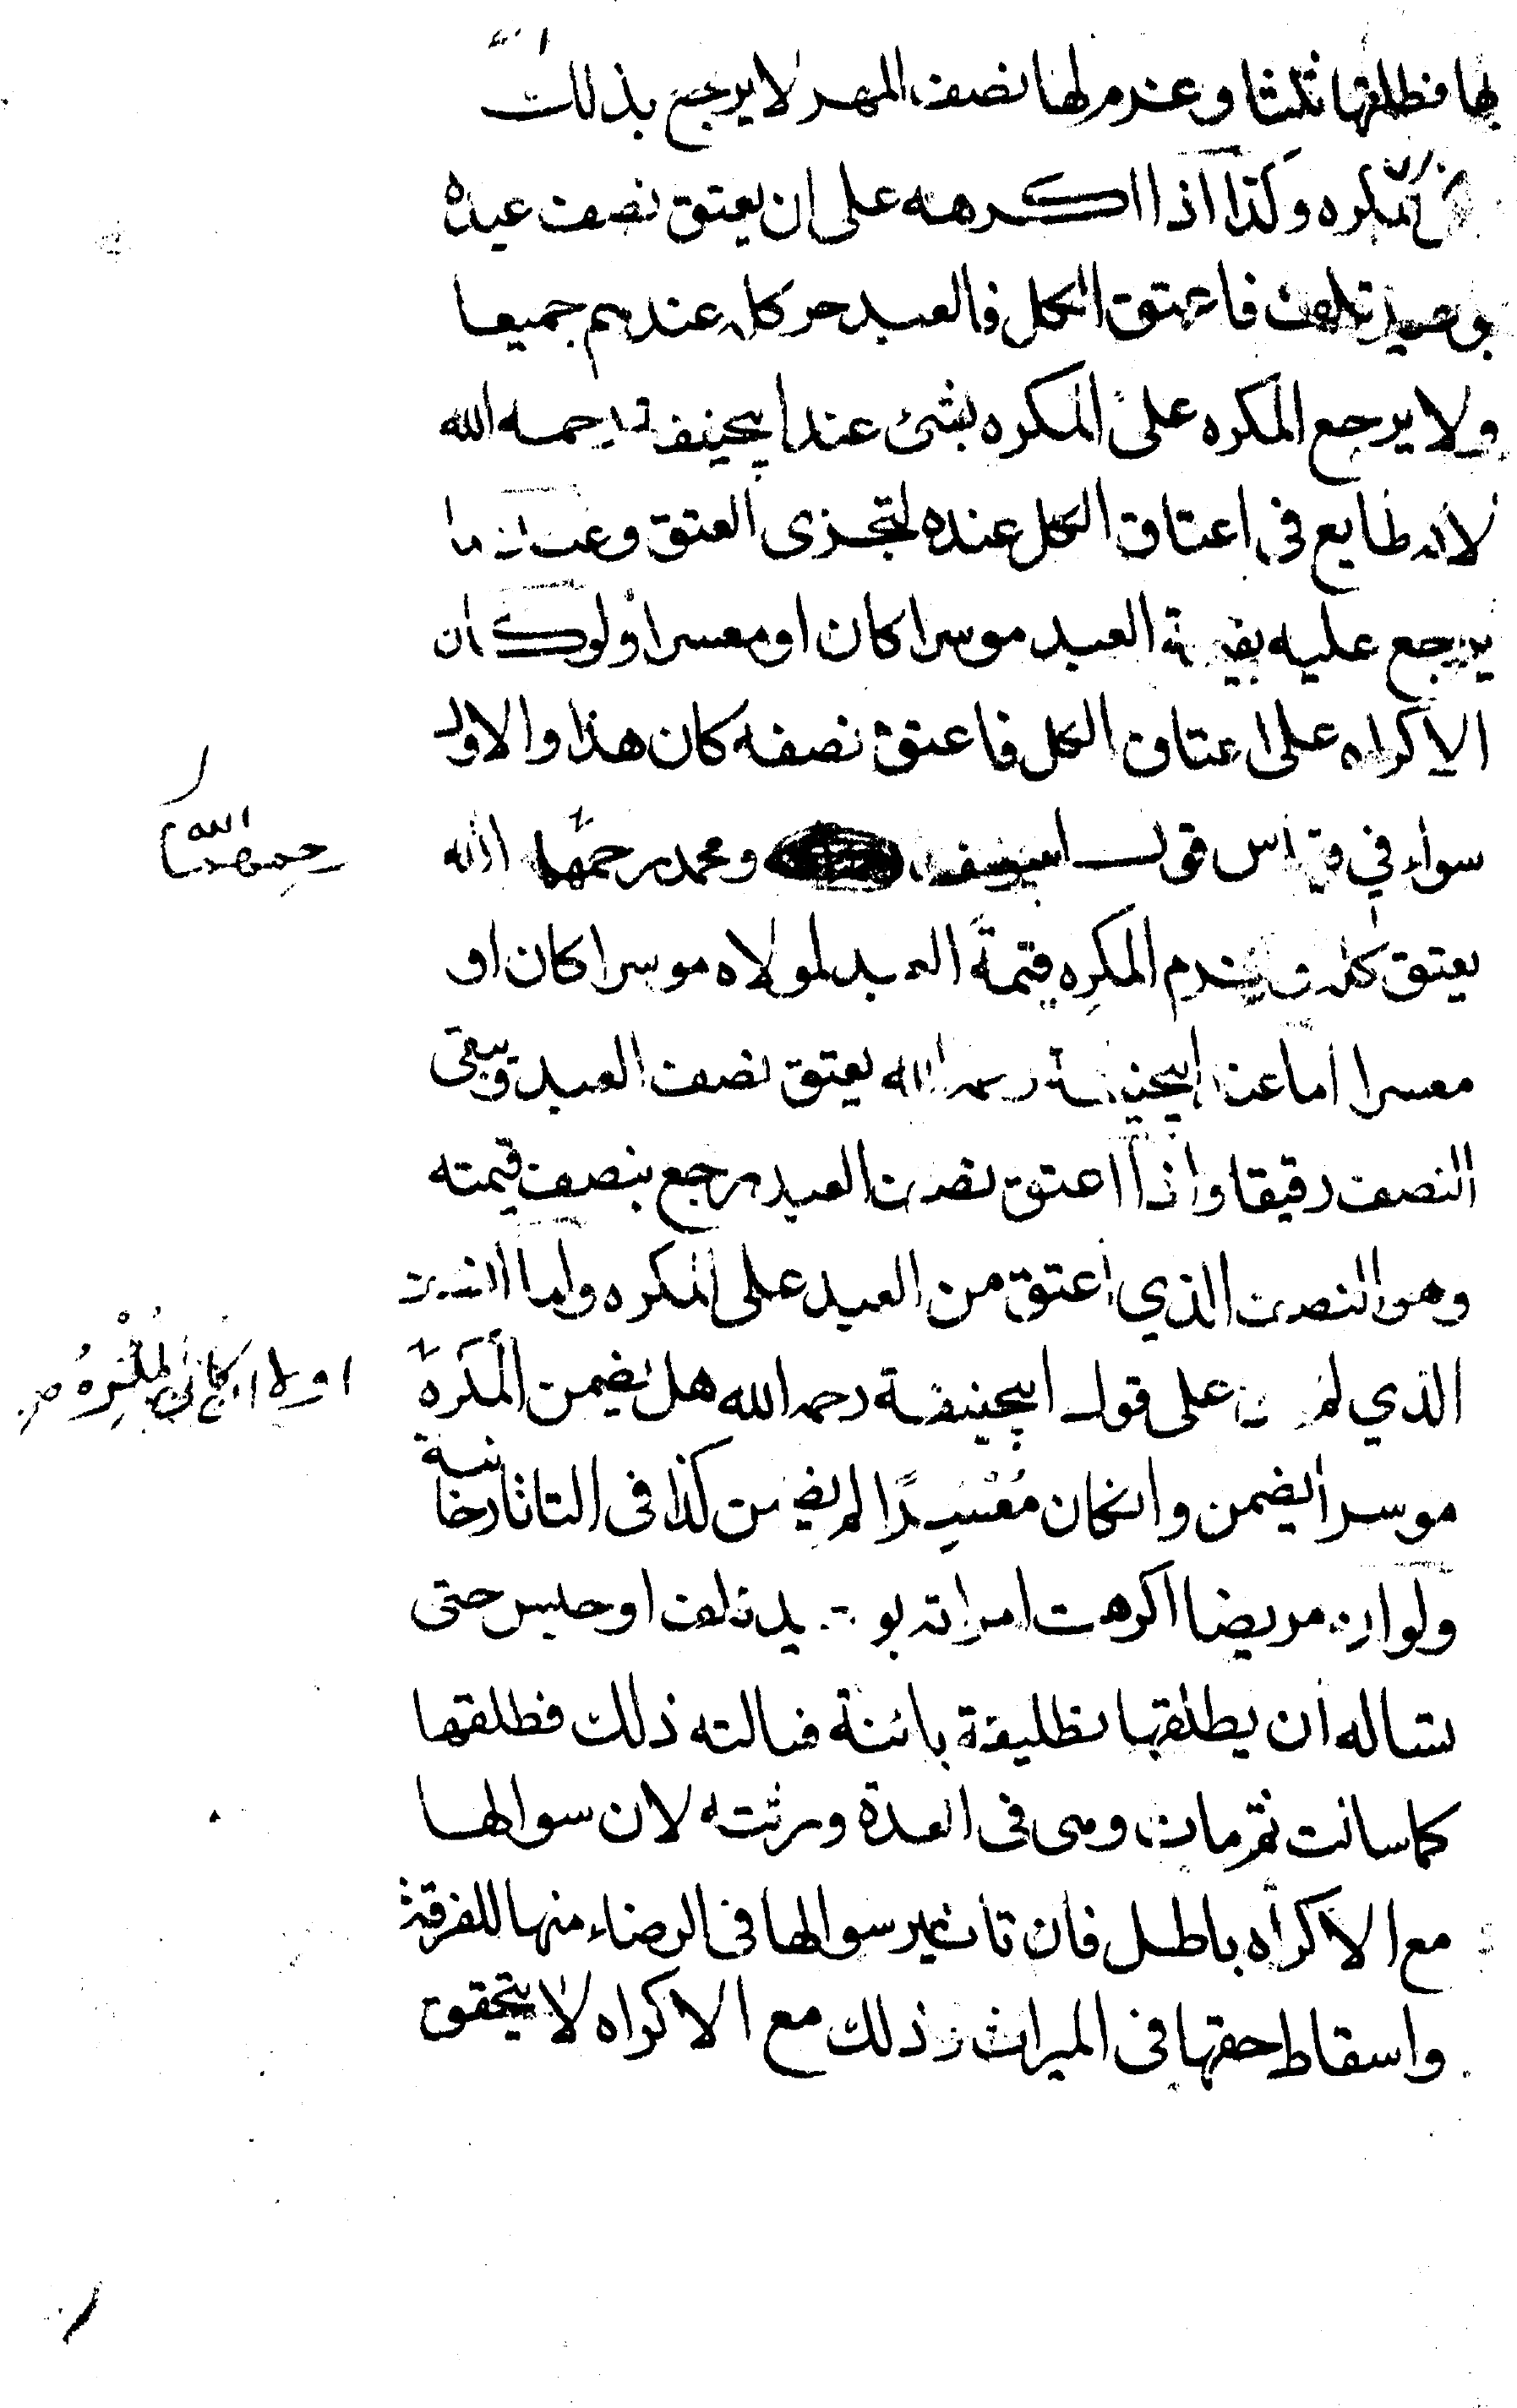 بها فطلقها ثلثا وغرم لها نصف المهر لا يرجع بذلك
المكره وكذا اذا اكرهه على ان يعتق نصف عبده
بوعيد تلف فاعتق الكل فالعبد حر كله عندهم جميعا
ولا يرجع المكره على المكره بشئ عند ابيحنيفة رحمه الله
لانه طايع في اعتاق الكل عنده لتجزى العتق وعندهما
يرجع عليه بقيمة العبد موسرا كان او معسرا ولو كان
الاكراه على اعتاق الكل فاعتق نصفه كان هذا والاول
سواء في قياس قول ابيوسف ومحمد رحمهما الله
رحمهما الله
يعتق كله يغرم المكرِه قيمة العبد لمولاه موسرا كان او
معسرا اما عند ابيحنيفة رحمه الله يعتق نصف العبد ويبقى
النصف رقيقا واذا اعتق نصف العبد يرجع بنصف قيمته
وهو النصف الذي اعتق من العبد على المكره واما النصف
الذي لم على قول ابيحنيفة رحمه الله هل يضمن المكره
اولا ان كان المكره
موسرا يضمن وانكان معسرًا لم يضمن كذا فى التاتارخانية
ولو ان مريضا اكرهت امراته بوعيد تلف او حبس حتى
تساله ان يطلقها تطليقة بائنة فسالته ذلك فطلقها
كما سالت ثم مات وهى فى العدة ورثته لان سوالها
مع الاكراه باطل فان تاثير سوالها فى الرضاء منها للفرقة
واسقاط حقها فى الميراث وذلك مع الاكراه لا يتحقق